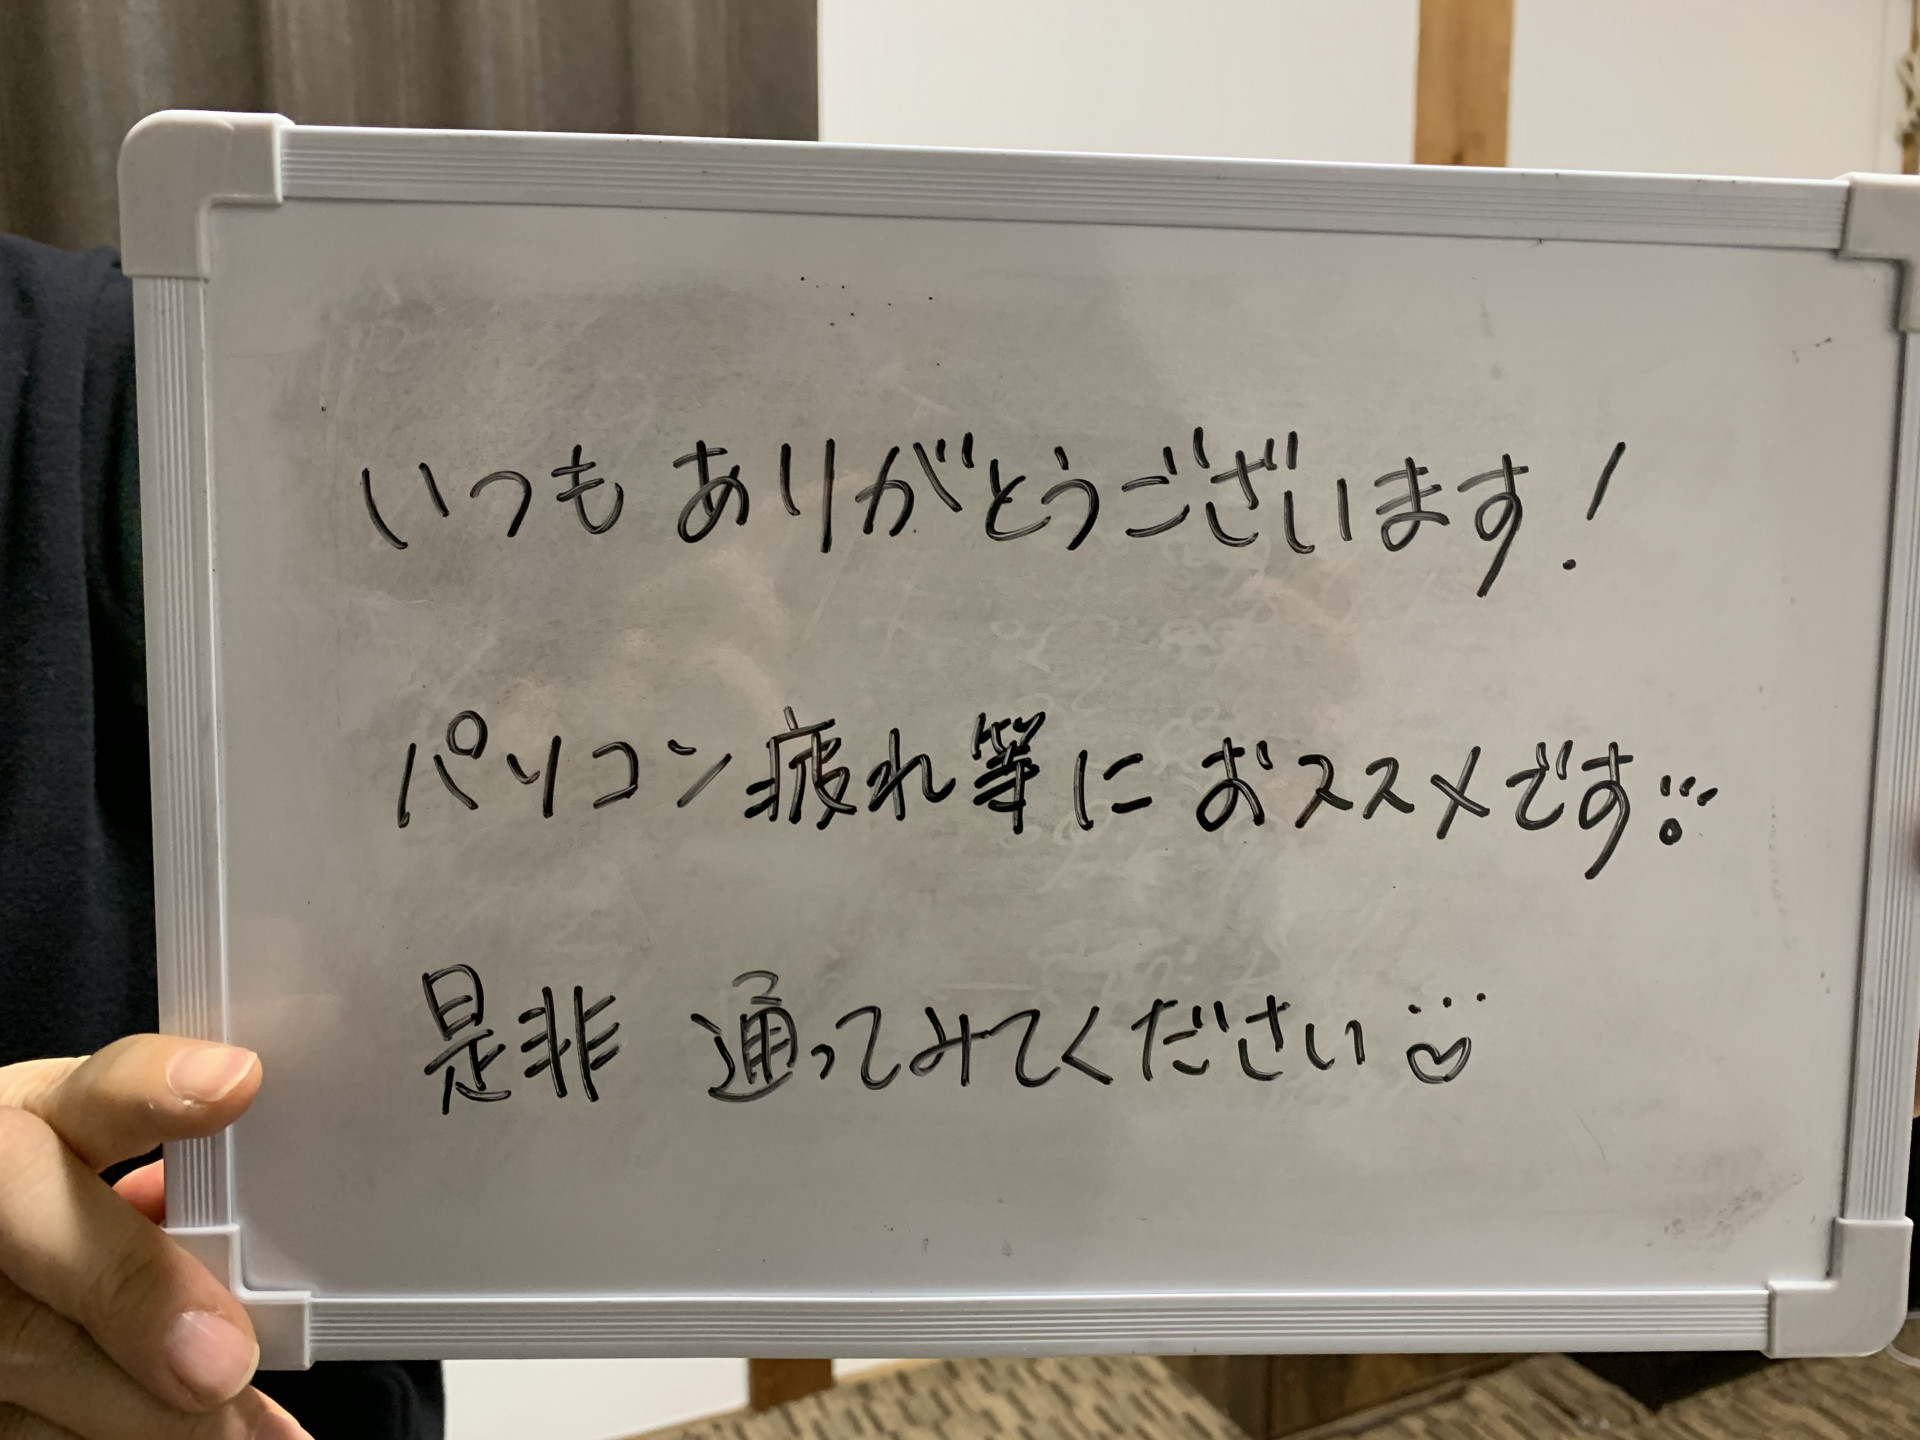 いつも ありがとうございます!
パソコン疲れ等に おススメです
是非 通ってみてください